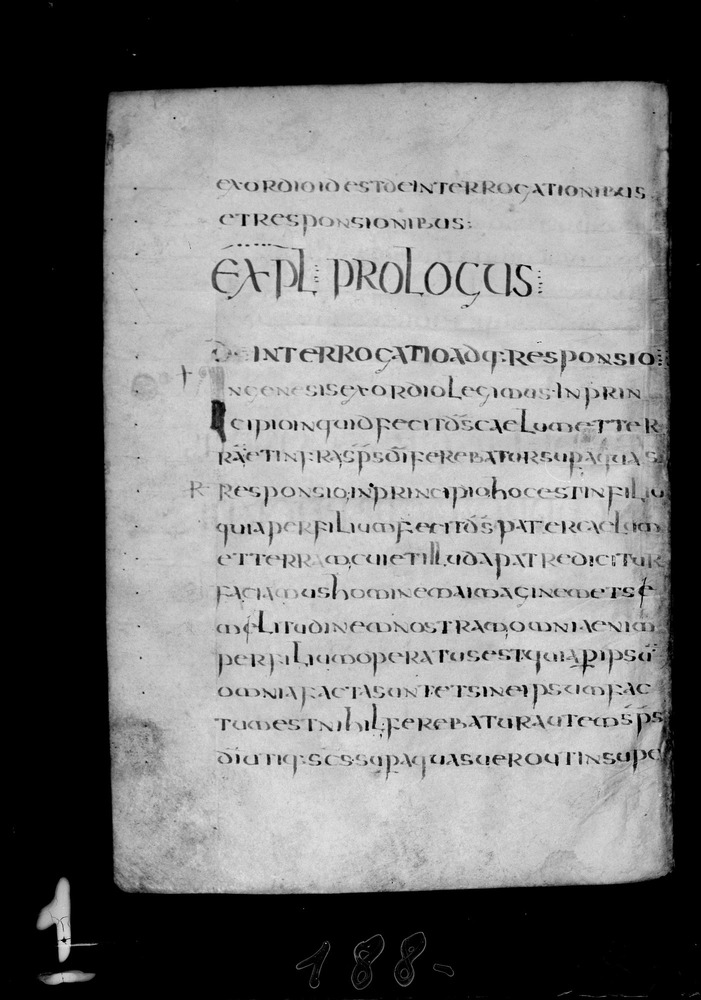 exordio id est de interrogationibus
et responsionibus:
EXPL PROLOGUS
INTERROGATIO ADq: RESPONSIO
n genesis exordio legimus In prin
cipio inquid fecit d̄s caelum et ter
ra et infra sp̄s dī ferebatur sup aquas
R Responsio; In principio hoc est in filio
quia per filium fecit d̄s pater caelum
et terram, cui et illud a patre dicitur
faciamus hominem ad imaginem et
litudinem nostram, omnia enim
per filium operatus est quia p̱ ipsū
omnia facta sunt et sine ipsum fac
tum est nihil; ferebatur autem sp̄s
dī utiq: sc̄s sup aquas uero ut in sup
1
188-